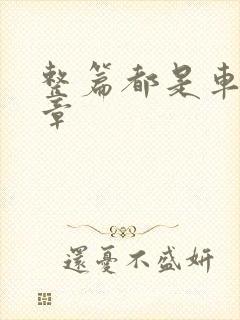 整篇都是車
章
還憂不盛妍